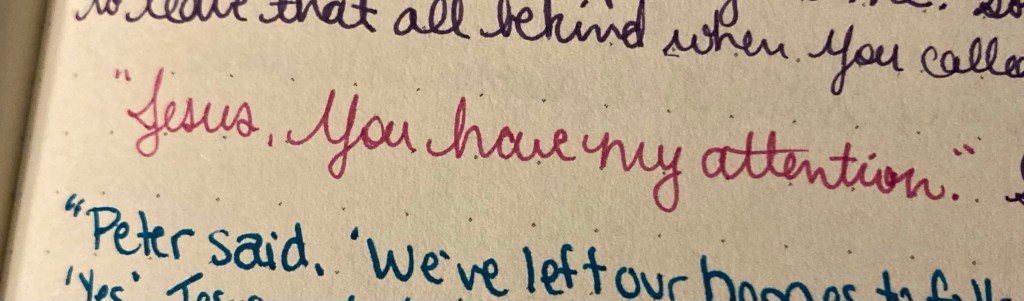 to leave that all behind when you called
"Jesus, You have my attention."
"Peter said, 'We've left our homes to
'Yes'